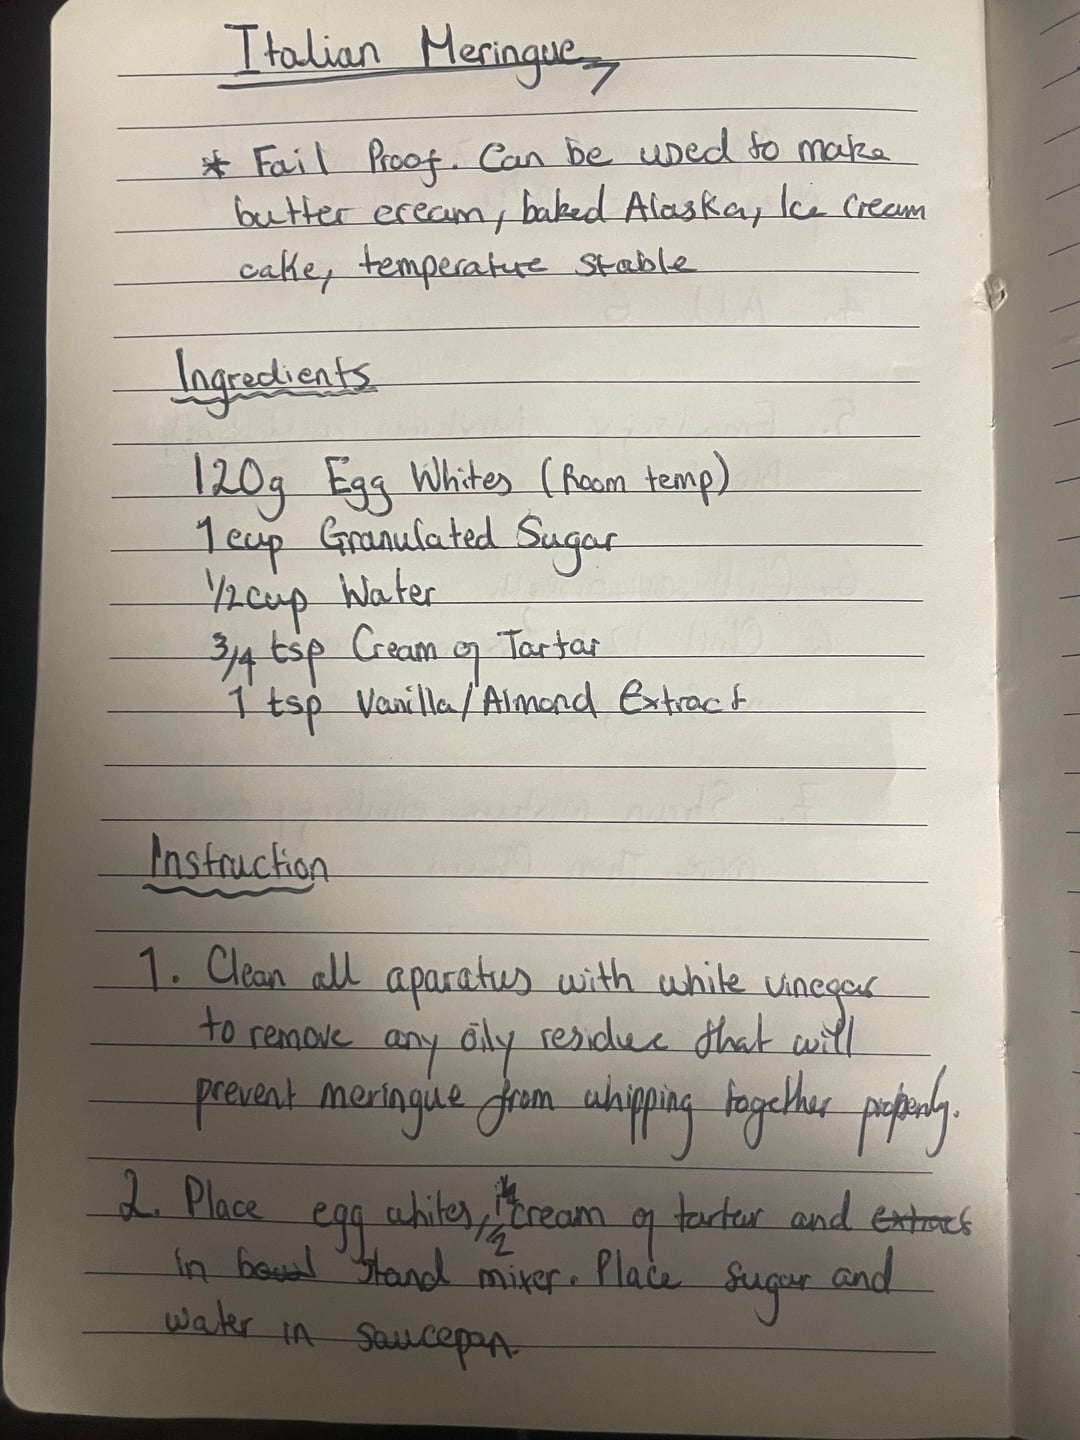 Italian Meringue
* Fail Proof. Can be used to make
butter cream, baked Alaska, Ice Cream
cake, temperature stable
Ingredients
120g Egg Whites (Room temp)
1 cup Granulated Sugar
1/2 cup Water
3/4 tsp Cream of Tartar
1 tsp Vanilla/Almond Extract
Instruction
1. Clean all aparatus with white vinegar
to remove any oily residue that will
prevent meringue from whipping together properly.
2. Place egg whites, 1/2 cream of tartar and extract
in bowl stand mixer. Place sugar and
water in saucepan.